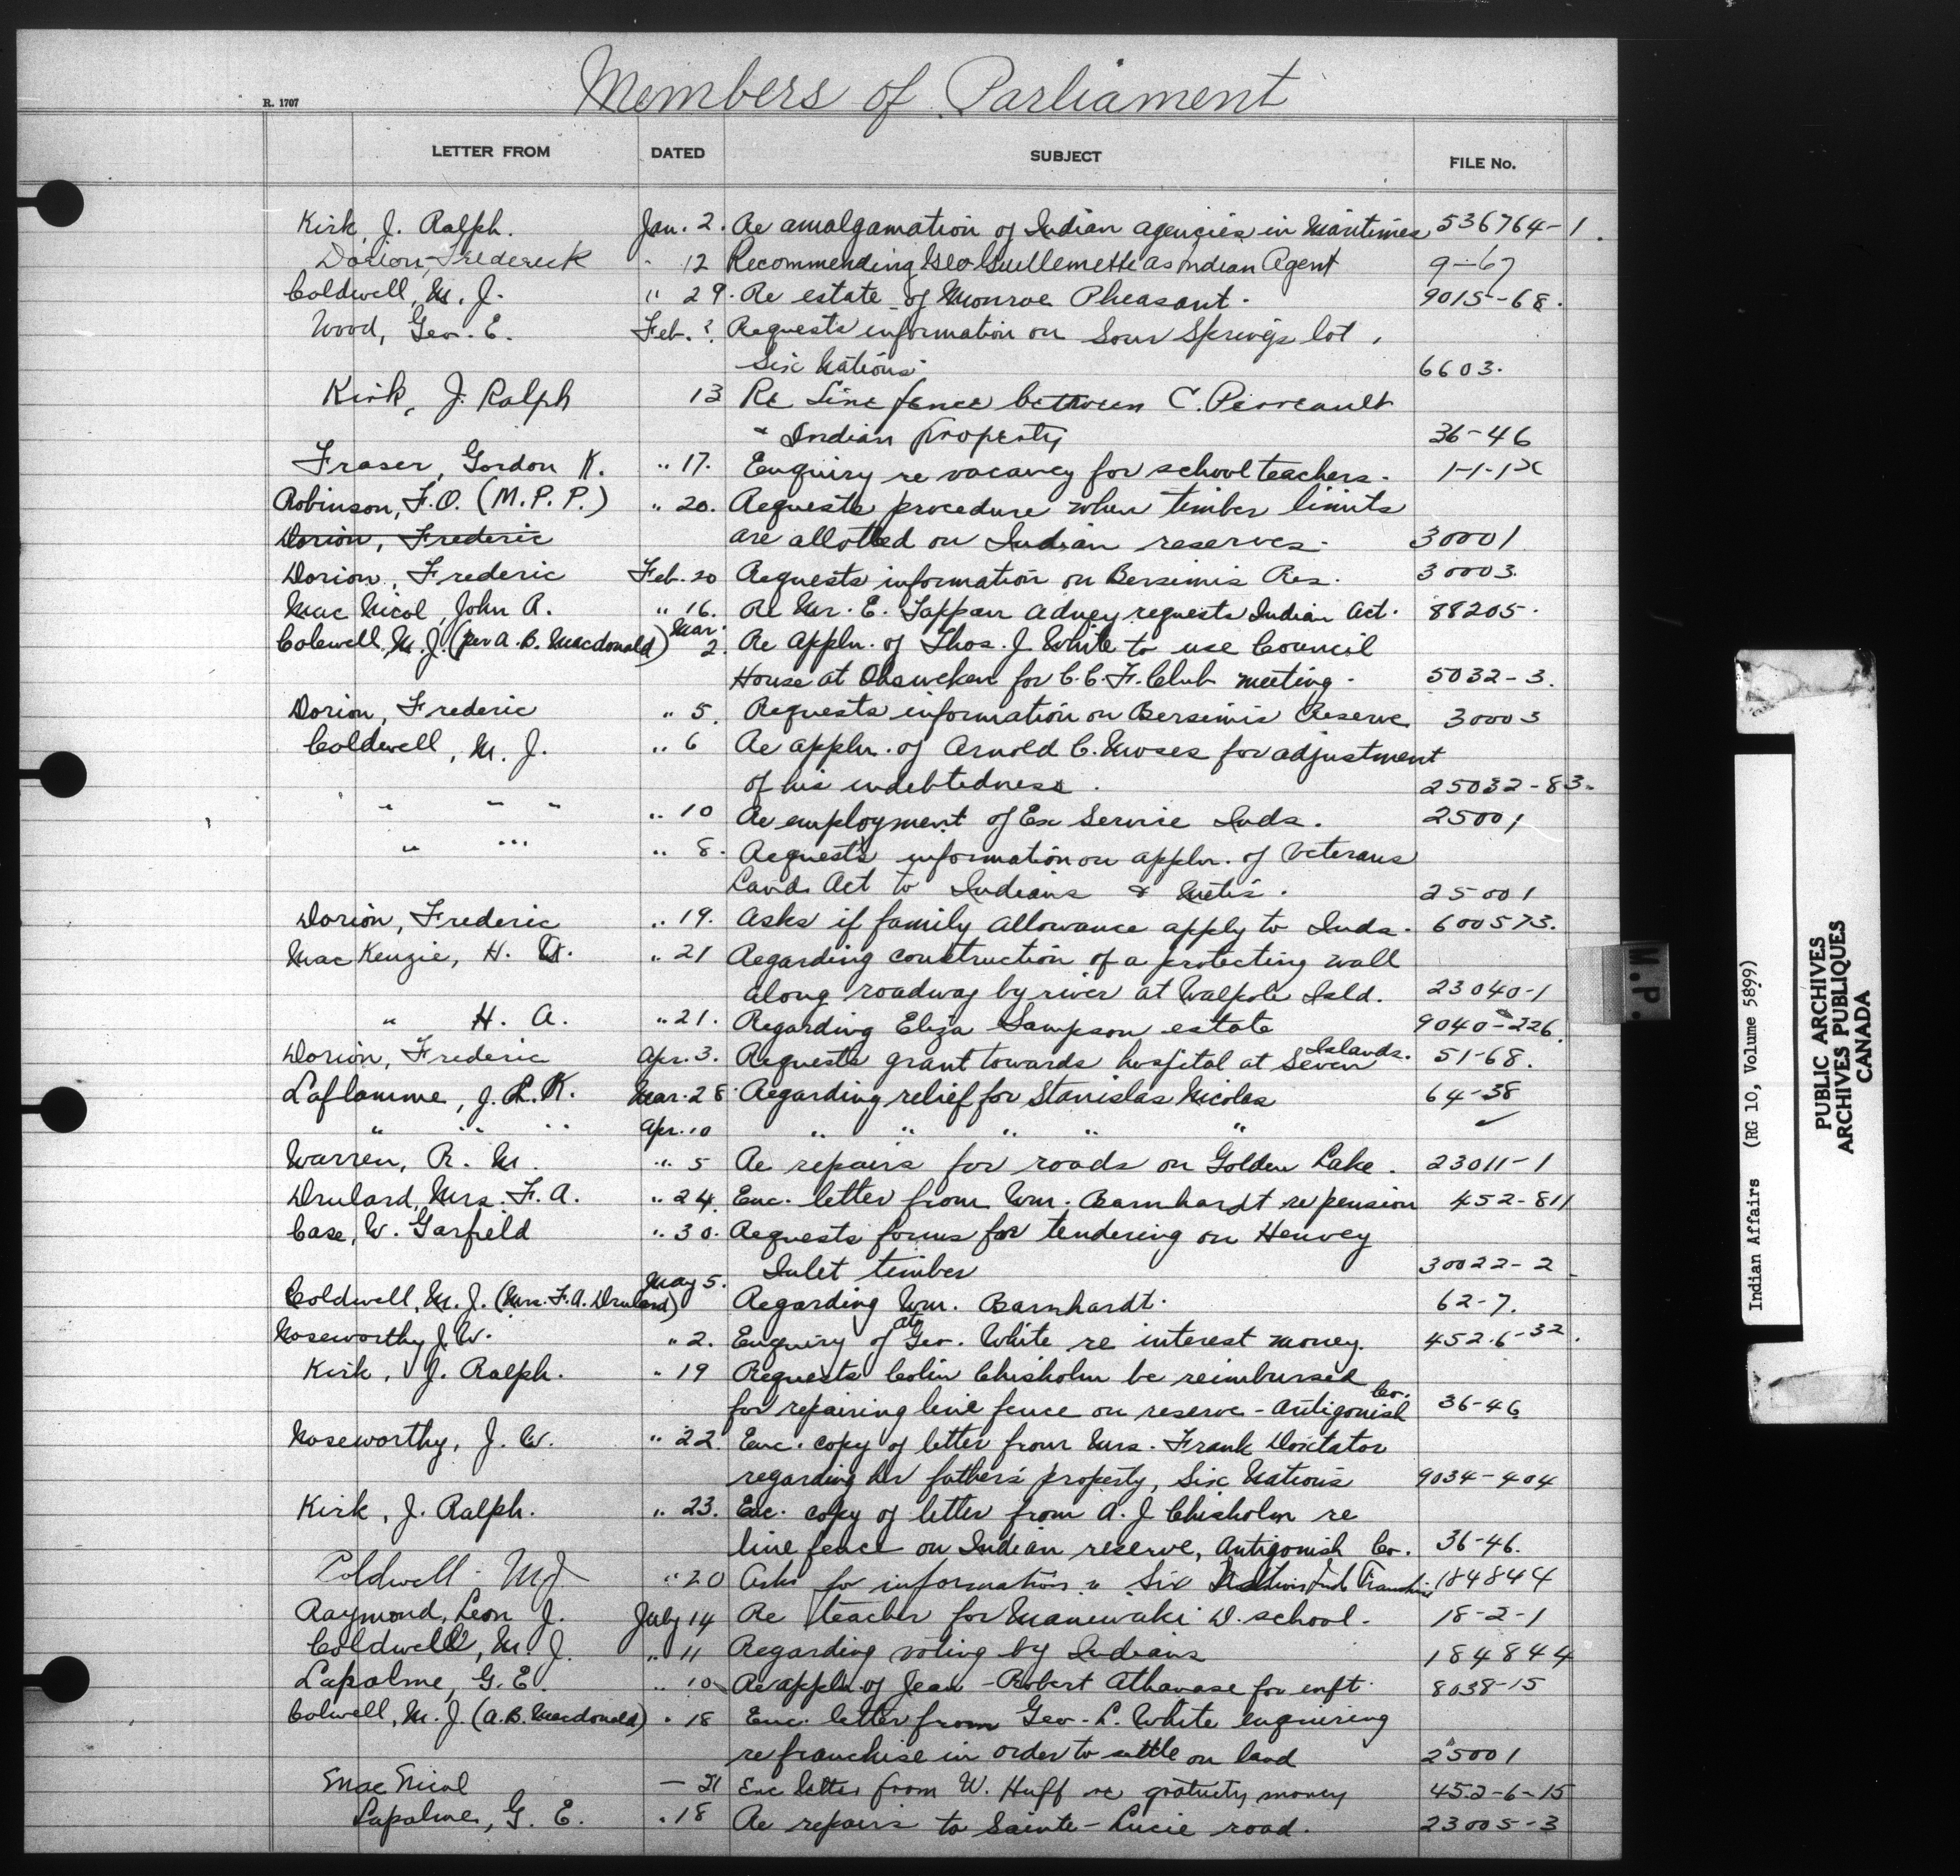 Members of Parliament
R. 1707
LETTER FROM DATED SUBJECT FILE No.
Kirk, J. Ralph. Jan. 2. Re amalgamation of Indian agencies in Maritimes 536764-1.
Dorion, Frederick " 12 Recommending Geo Guillemette as Indian Agent 9-67
Coldwell, M. J. " 29. Re estate of Monroe Pheasant. 9015-68.
Wood, Geo. E. Feb. ? Requests information on Sour Springs lot,
Six Nations. 6603.
Kirk, J. Ralph 13 Re Line fence between C. Perreault
& Indian property 36-46
Fraser, Gordon K. " 17. Enquiry re vacancy for school teachers. 1-1-1
Robinson, F.O. (M.P.P.) " 20. Requests procedure when timber limits
Dorion, Frederic are allotted on Indian reserves. 30001
Dorion, Frederic Feb. 20 Requests information on Bersimis Res. 30003.
Mac Nicol, John R. " 16. Re Mr. E. Tappan Adney requests Indian Act. 88205.
Colewell, M. J. (per A. B. Macdonald) Mar. 2. Re appln. of Thos. J. White to use Council
House at Ohsweken for C.C.F. Club meeting. 5032-3.
Dorion, Frederic " 5. Requests information on Bersimis Reserve 30003
Coldwell, M. J. " 6 Re appln. of Arnold C. Moses for adjustment
of his indebtedness. 25032-83.
" " " " 10 Re employment of Ex Service Inds. 25001
" " " " 8. Requests information on appln. of Veterans
Land Act to Indians & Metis. 25001
Dorion, Frederic " 19. Asks if family allowance apply to Inds. 600573.
Mac Kenzie, H. " 21 Regarding construction of a protecting wall
along roadway by river at Walpole Isld. 23040-1
" H. A. " 21. Regarding Eliza Sampson estate 9040-226.
Dorion, Frederic Apr. 3. Requests grant towards hospital at Seven Islands. 51-68.
Laflamme, J. L. K. Mar. 28. Regarding relief for Stanislas Nicolas 64-38
" " " Apr. 10 " " " " " ✓
Warren, R. M. " 5 Re repairs for roads on Golden Lake. 23011-1
Drulard, Mrs. F. A. " 24. Enc. letter from Wm. Barnhardt re pension 452-811
Case, W. Garfield " 30. Requests forms for tendering on Henvey
Inlet timber 30022-2
Coldwell, M. J. (Mrs. F. A. Drulard) May 5. Regarding Wm. Barnhardt. 62-7.
Noseworthy J. W. " 2. Enquiry of Geo. White re interest money. 452-6-32.
Kirk, J. Ralph. " 19 Requests Colin Chisholm be reimbursed
for repairing line fence on reserve - Antigonish Co. 36-46
Noseworthy, J. W. " 22. Enc. copy of letter from Mrs. Frank Doxtator
regarding her father's property, Six Nations 9034-404
Kirk, J. Ralph. " 23. Enc. copy of letter from A. J. Chisholm re
line fence on Indian reserve, Antigonish Co. 36-46.
Coldwell - M J " 20 Asks for information re Six Nations Ind Franchise 184844
Raymond, Leon J. July 14 Re teacher for Maniwaki D. school. 18-2-1
Coldwell, M. J. " 11 Regarding voting by Indians 184844
Lapalme, G. E. " 10 Re appln. of Jean-Robert Athanase for enft. 8038-15
Colwell, M. J. (A.B. Macdonald) " 18 Enc. letter from Geo. L. White enquiring
re franchise in order to settle on land 25001
Mac Nicol — 21 Enc letter from W. Huff re gratuity money 452-6-15
Lapalme, G. E. " 18 Re repairs to Sainte-Lucie road. 23005-3
M.P.
Indian Affairs (RG 10, Volume 5899)
PUBLIC ARCHIVES
ARCHIVES PUBLIQUES
CANADA